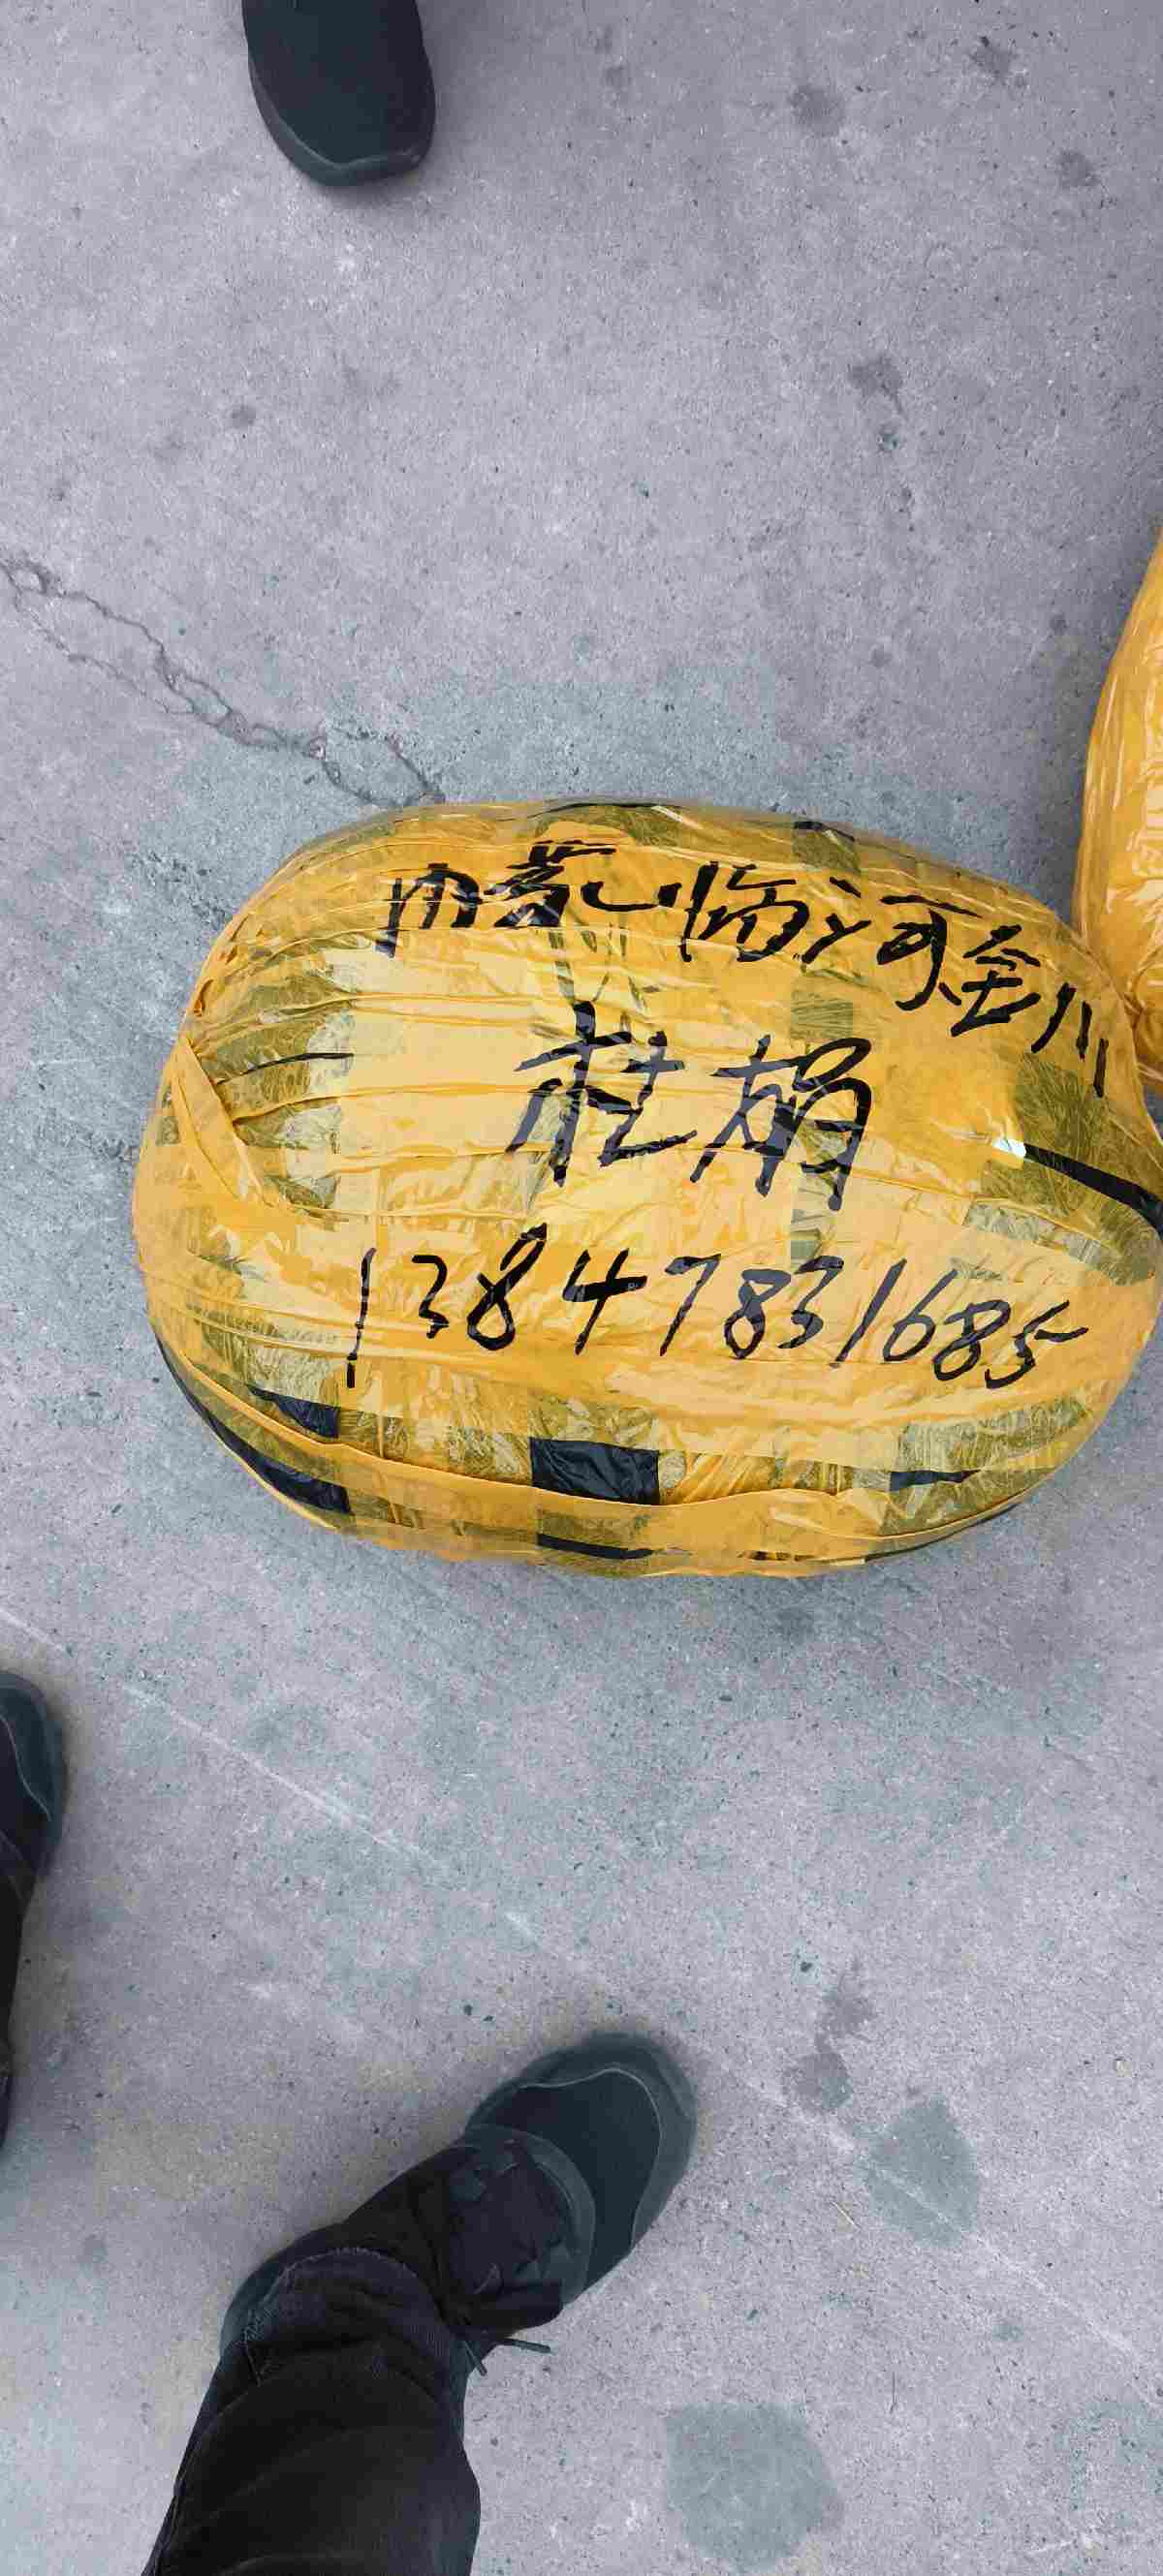 内蒙 临河金川
杜娟
13847831685